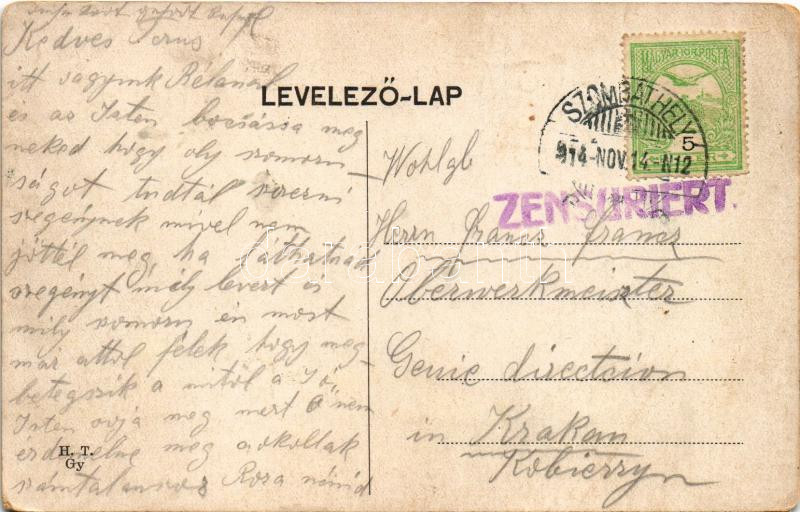 Kedves
itt vagyunk Bélánál
és az Isten bocsássa meg
neked hogy oly szomorú
ságot tudtál szerzni
szegénynek mivel nem
jöttél meg, ha láthatnád
szegényt mily levert és
mily szomorú én most
már attól félek hogy meg
betegszik a mitől a Jó
Isten ója meg mert ő nem
érdemelne meg csókollak
számtalanszor Roza nénid
H. T.
Gy
LEVELEZŐ-LAP
MAGYAR KIR. POSTA
5
SZOMBATHELY
914-NOV.14-N12
ZENSURIERT.
Wohlgb
Herrn Franz Francz
Oberwerkmeister
Genie direction
in Krakau
Kobierzyn
darabanth